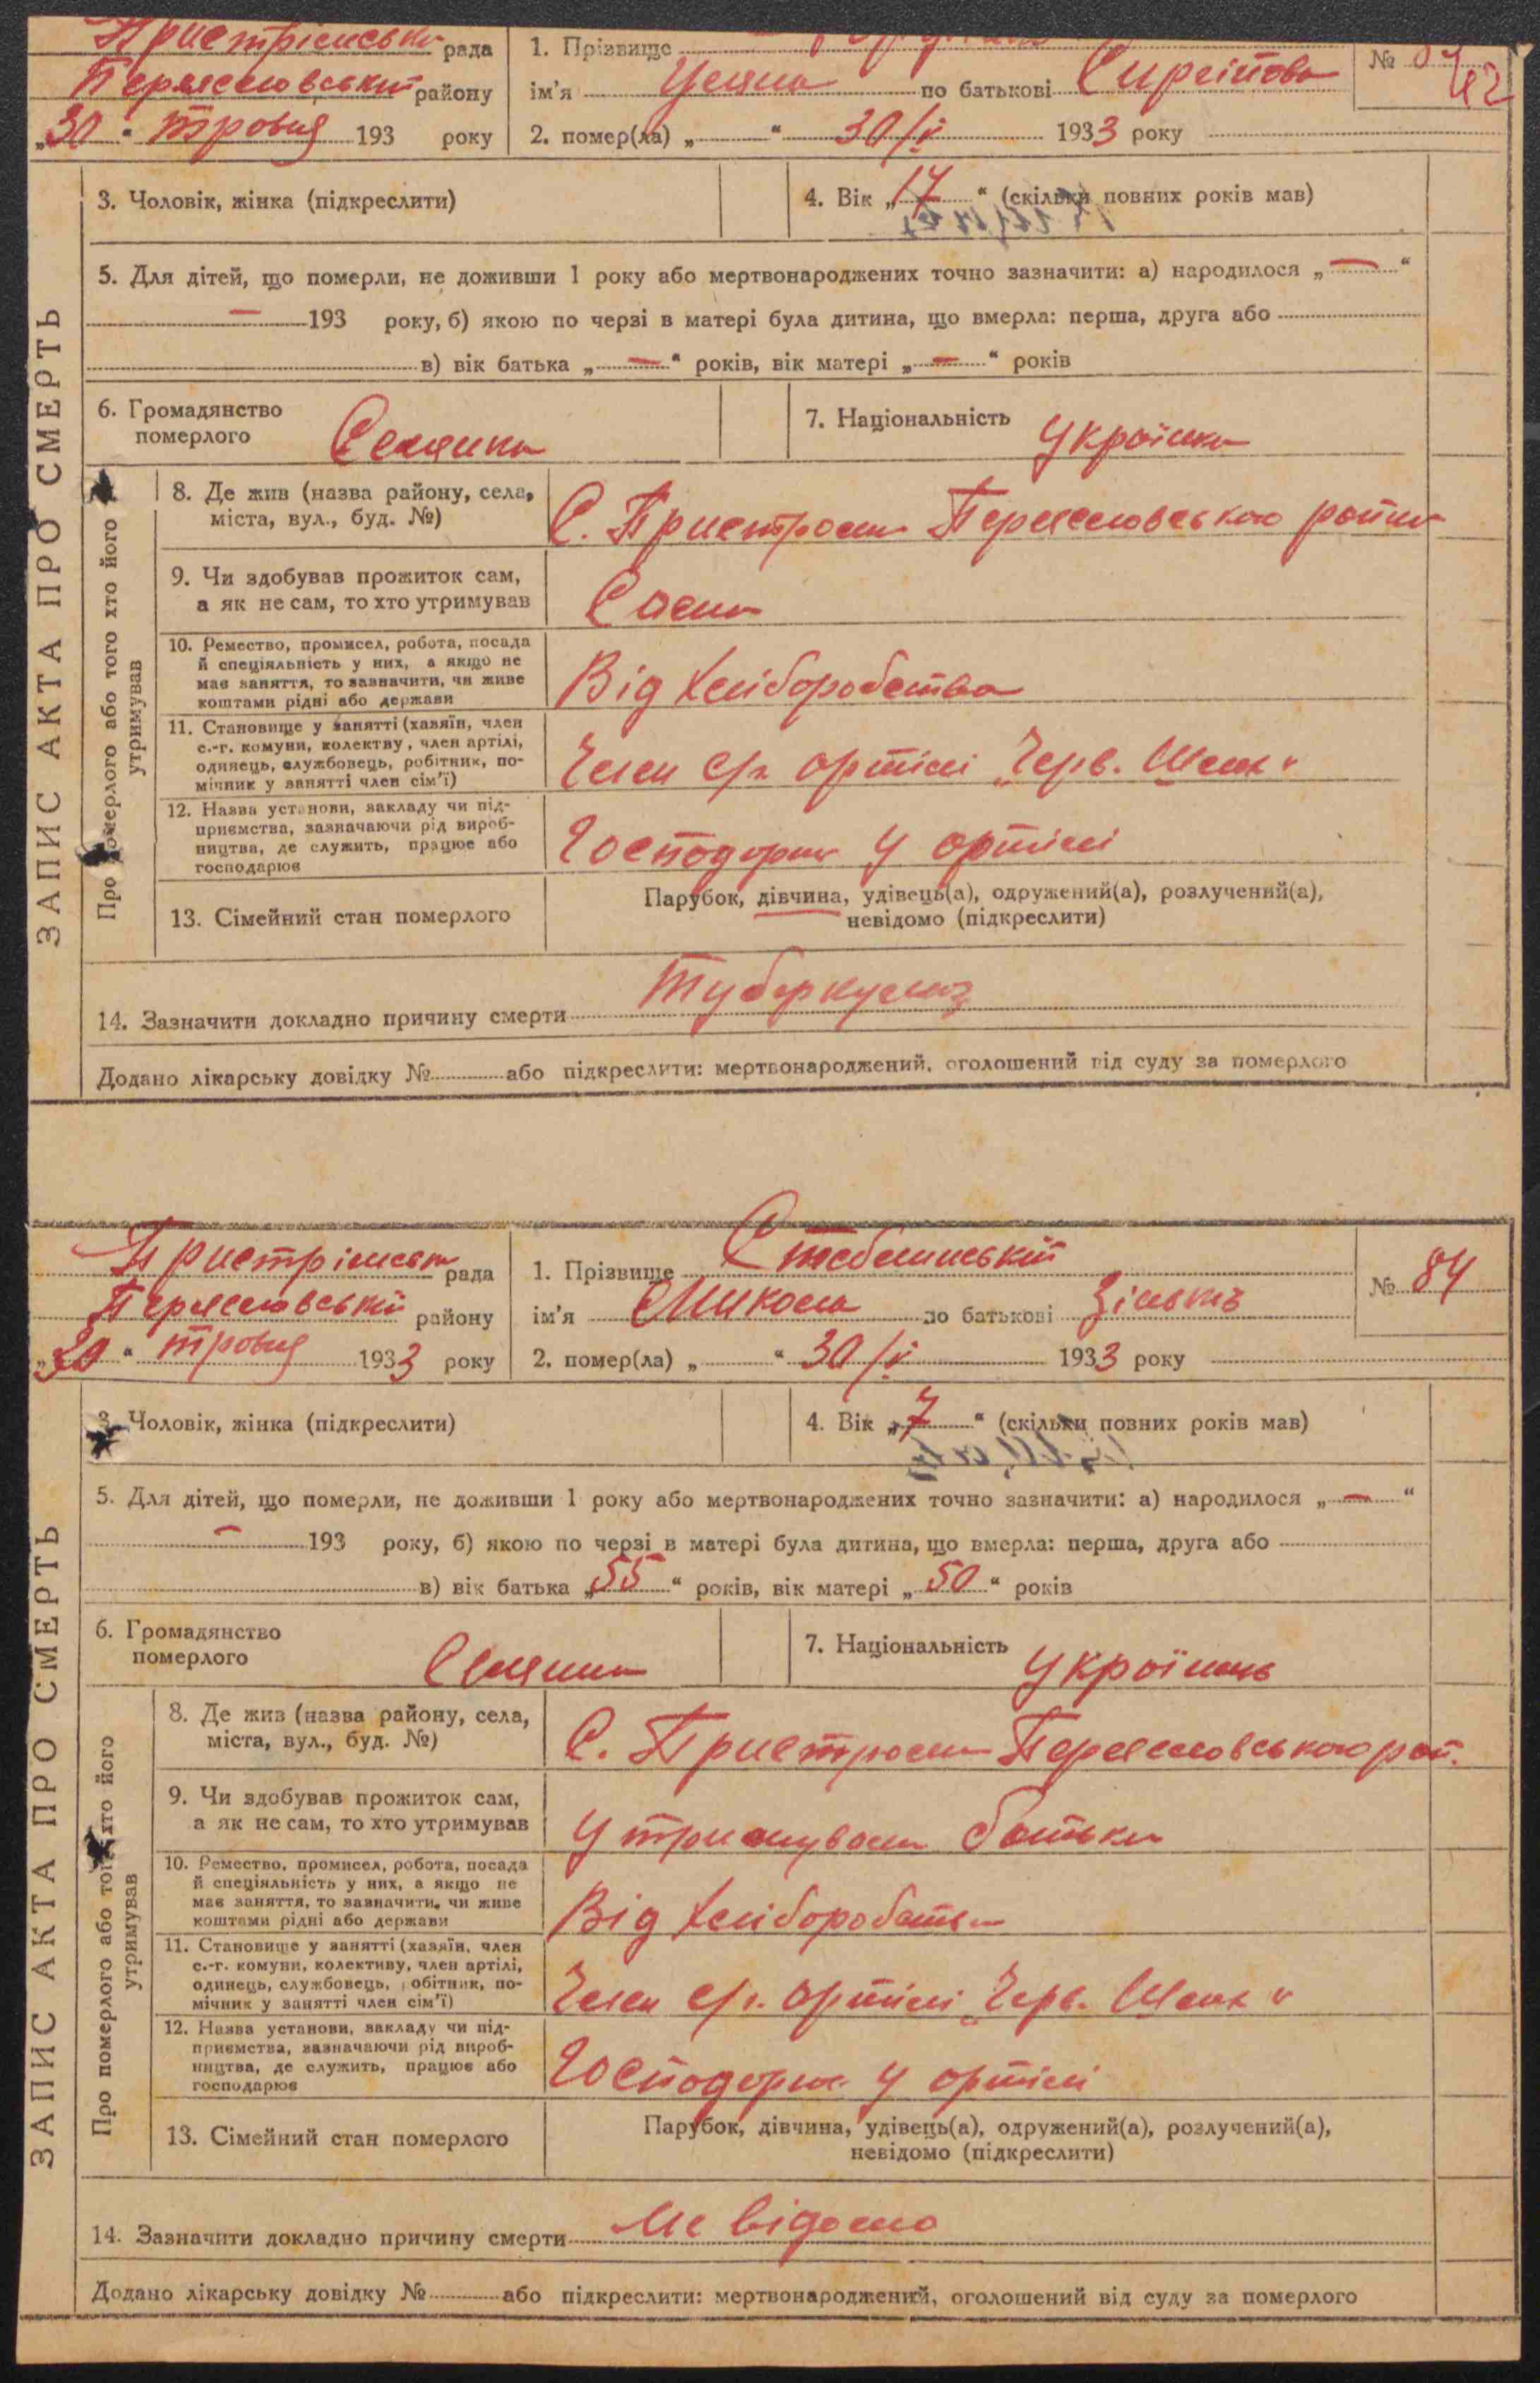 Пристрімська рада
Переяславський району
„30“ травня 193 року
1. Прізвище
ім'я Уляна по батькові
№
42
2. помер(ла) „ “ 30/V 1933 року
3. Чоловік, жінка (підкреслити)
4. Вік „17“ (скільки повних років мав)
5. Для дітей, що померли, не доживши 1 року або мертвонароджених точно зазначити: а) народилося „—“
— 193 року, б) якою по черзі в матері була дитина, що вмерла: перша, друга або
в) вік батька „—“ років, вік матері „—“ років
6. Громадянство
померлого Селянка
7. Національність Українка
ЗАПИС АКТА ПРО СМЕРТЬ
Про померлого або того хто його
утримував
8. Де жив (назва району, села,
міста, вул., буд. №)
С. Пристроми Переяславського району
9. Чи здобував прожиток сам,
а як не сам, то хто утримував
Сама
10. Ремество, промисел, робота, посада
й спеціяльність у них, а якщо не
має заняття, то зазначити, чи живе
коштами рідні або держави
Від хліборобства
11. Становище у занятті (хазяїн, член
с.-г. комуни, колективу, член артілі,
одинець, службовець, робітник, по-
мічник у занятті член сім'ї)
Член с/г. артілі „Черв. Шлях“
12. Назва установи, закладу чи під-
приємства, зазначаючи рід вироб-
ництва, де служить, працює або
господарює
Господарює у артілі
13. Сімейний стан померлого
Парубок, дівчина, удівець(а), одружений(а), розлучений(а),
невідомо (підкреслити)
14. Зазначити докладно причину смерти Туберкульоз
Додано лікарську довідку № або підкреслити: мертвонароджений, оголошений від суду за померлого
Пристрімська рада
Переяславський району
„30“ травня 1933 року
1. Прізвище Стеблинський
ім'я Микола по батькові
№ 84
2. помер(ла) „ “ 30/V 1933 року
3. Чоловік, жінка (підкреслити)
4. Вік „7“ (скільки повних років мав)
5. Для дітей, що померли, не доживши 1 року або мертвонароджених точно зазначити: а) народилося „—“
— 193 року, б) якою по черзі в матері була дитина, що вмерла: перша, друга або
в) вік батька „55“ років, вік матері „50“ років
6. Громадянство
померлого Селянин
7. Національність Українець
ЗАПИС АКТА ПРО СМЕРТЬ
Про померлого або того хто його
утримував
8. Де жив (назва району, села,
міста, вул., буд. №)
С. Пристроми Переяславського рай.
9. Чи здобував прожиток сам,
а як не сам, то хто утримував
Утримували батьки
10. Ремество, промисел, робота, посада
й спеціяльність у них, а якщо не
має заняття, то зазначити, чи живе
коштами рідні або держави
Від хліборобства
11. Становище у занятті (хазяїн, член
с.-г. комуни, колективу, член артілі,
одинець, службовець, робітник, по-
мічник у занятті член сім'ї)
Член с/г. артілі „Черв. Шлях“
12. Назва установи, закладу чи під-
приємства, зазначаючи рід вироб-
ництва, де служить, працює або
господарює
Господарює у артілі
13. Сімейний стан померлого
Парубок, дівчина, удівець(а), одружений(а), розлучений(а),
невідомо (підкреслити)
14. Зазначити докладно причину смерти Не відомо
Додано лікарську довідку № або підкреслити: мертвонароджений, оголошений від суду за померлого